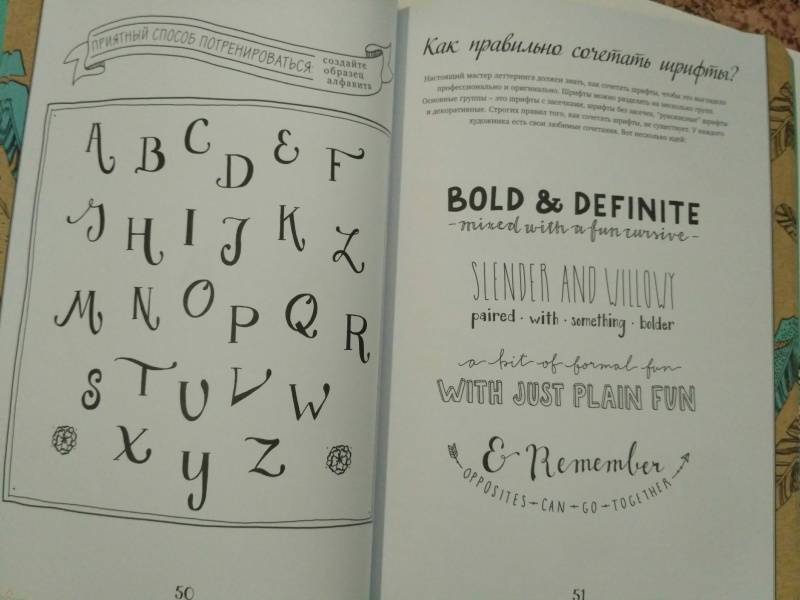 ПРИЯТНЫЙ СПОСОБ ПОТРЕНИРОВАТЬСЯ:
создайте
образец
алфавита
A B C D E F
G H I J K L
M N O P Q R
S T U V W
X Y Z
50
Как правильно сочетать шрифты?
Настоящий мастер леттеринга должен знать, как сочетать шрифты, чтобы это выглядело
профессионально и оригинально. Шрифты можно разделить на несколько групп.
Основные группы – это шрифты с засечками, шрифты без засечек, "рукописные" шрифты
и декоративные. Строгих правил того, как сочетать шрифты, не существует. У каждого
художника есть свои любимые сочетания. Вот несколько идей:
BOLD & DEFINITE
- mixed with a fun cursive -
SLENDER AND WILLOWY
paired · with · something · bolder
a bit of formal fun
WITH JUST PLAIN FUN
& Remember
OPPOSITES - CAN - GO - TOGETHER
51